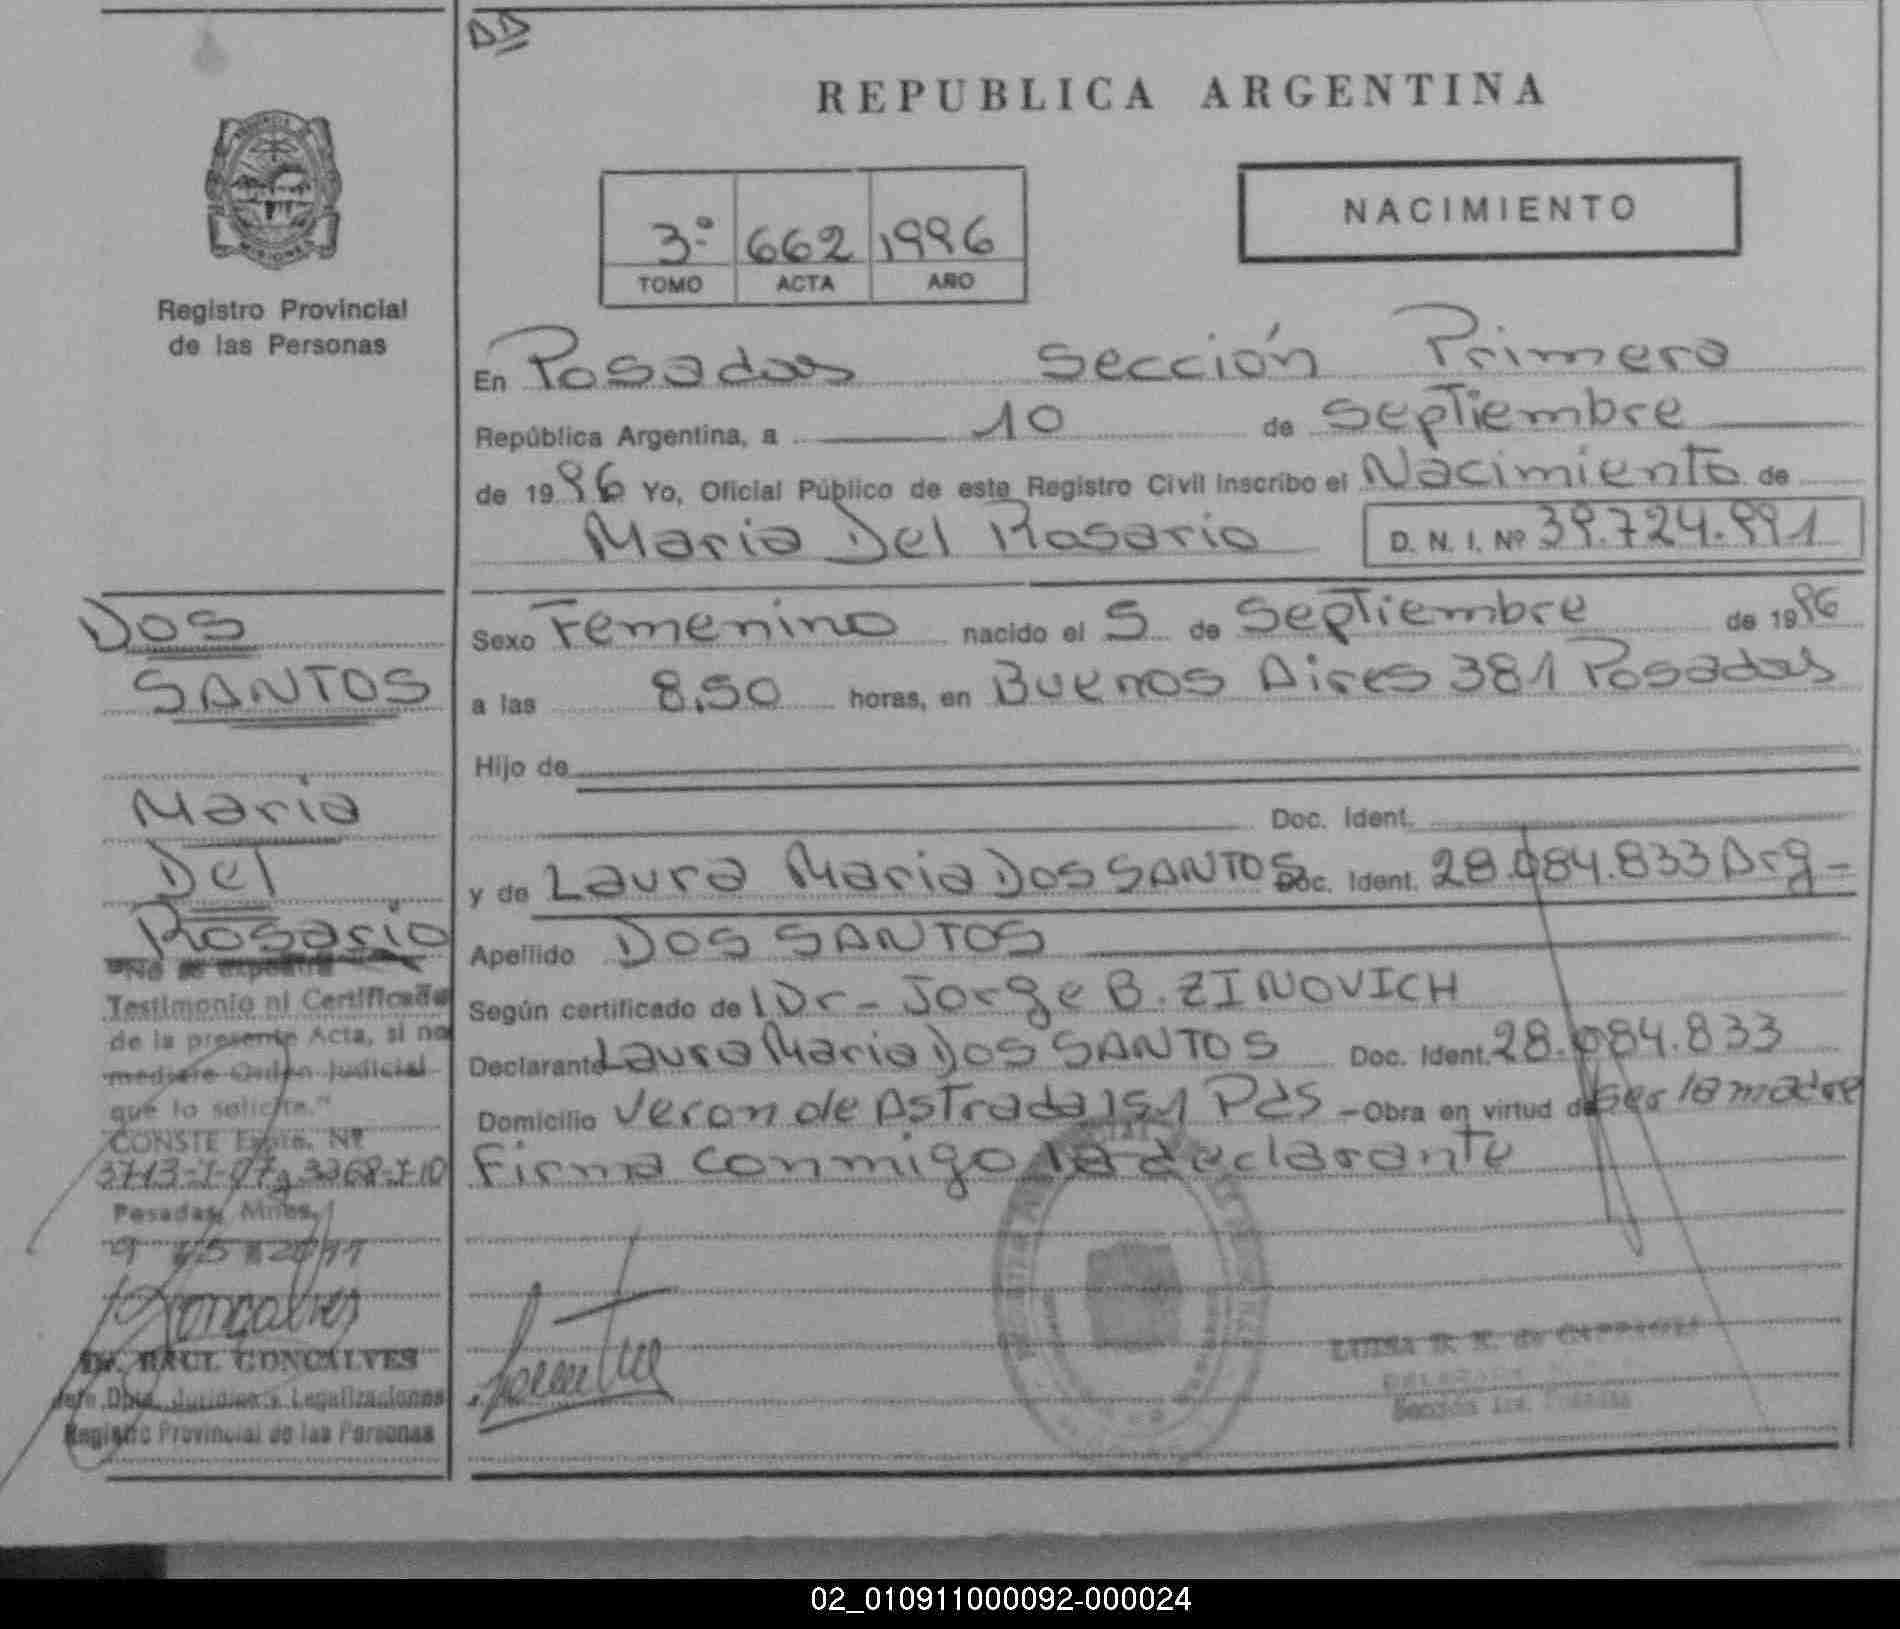 DD
REPUBLICA ARGENTINA
NACIMIENTO
3º 662 1996
TOMO ACTA AÑO
Registro Provincial
de las Personas
En Posadas Sección Primera
República Argentina, a 10 de Septiembre
de 1996 Yo, Oficial Público de este Registro Civil Inscribo el Nacimiento de
Maria Del Rosario D. N. I. Nº 39.724.991
Sexo Femenino nacido el 5 de Septiembre de 1996
a las 8,50 horas, en Buenos Aires 381 Posadas
Hijo de
Doc. Ident.
y de Laura Maria Dos SANTOS Doc. Ident. 28.084.833 Arg-
Apellido DOS SANTOS
Según certificado de Dr- Jorge B. ZINOVICH
Declarante Laura Maria Dos SANTOS Doc. Ident. 28.084.833
Domicilio Veron de Astrada 151 Pds -Obra en virtud de ser la madre
Firma conmigo la declarante
Dos
SANTOS
Maria
Del
Rosario
"No se expedirá
Testimonio ni Certificado
de la presente Acta, si no
mediare Orden Judicial
que lo solicite."
CONSTE Expte. Nº
Posadas, Mnes.
Goncalves
Dr. RAUL GONCALVES
Jefe Dpto. Jurídico y Legalizaciones
Registro Provincial de las Personas
LUISA
Sección
02_010911000092-000024